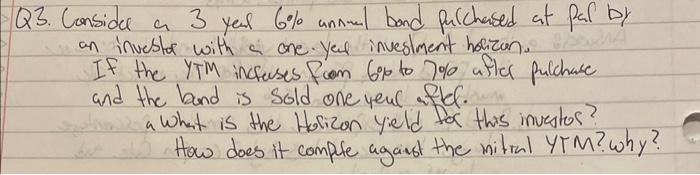 Q3. Consider a 3 year 6% annual bond purchased at par by
an investor with a one-year investment horizon.
If the YTM increases from 6% to 7% after purchase
and the bond is sold one year after.
a what is the Horizon yield for this investor?
How does it compare against the initial YTM? why?